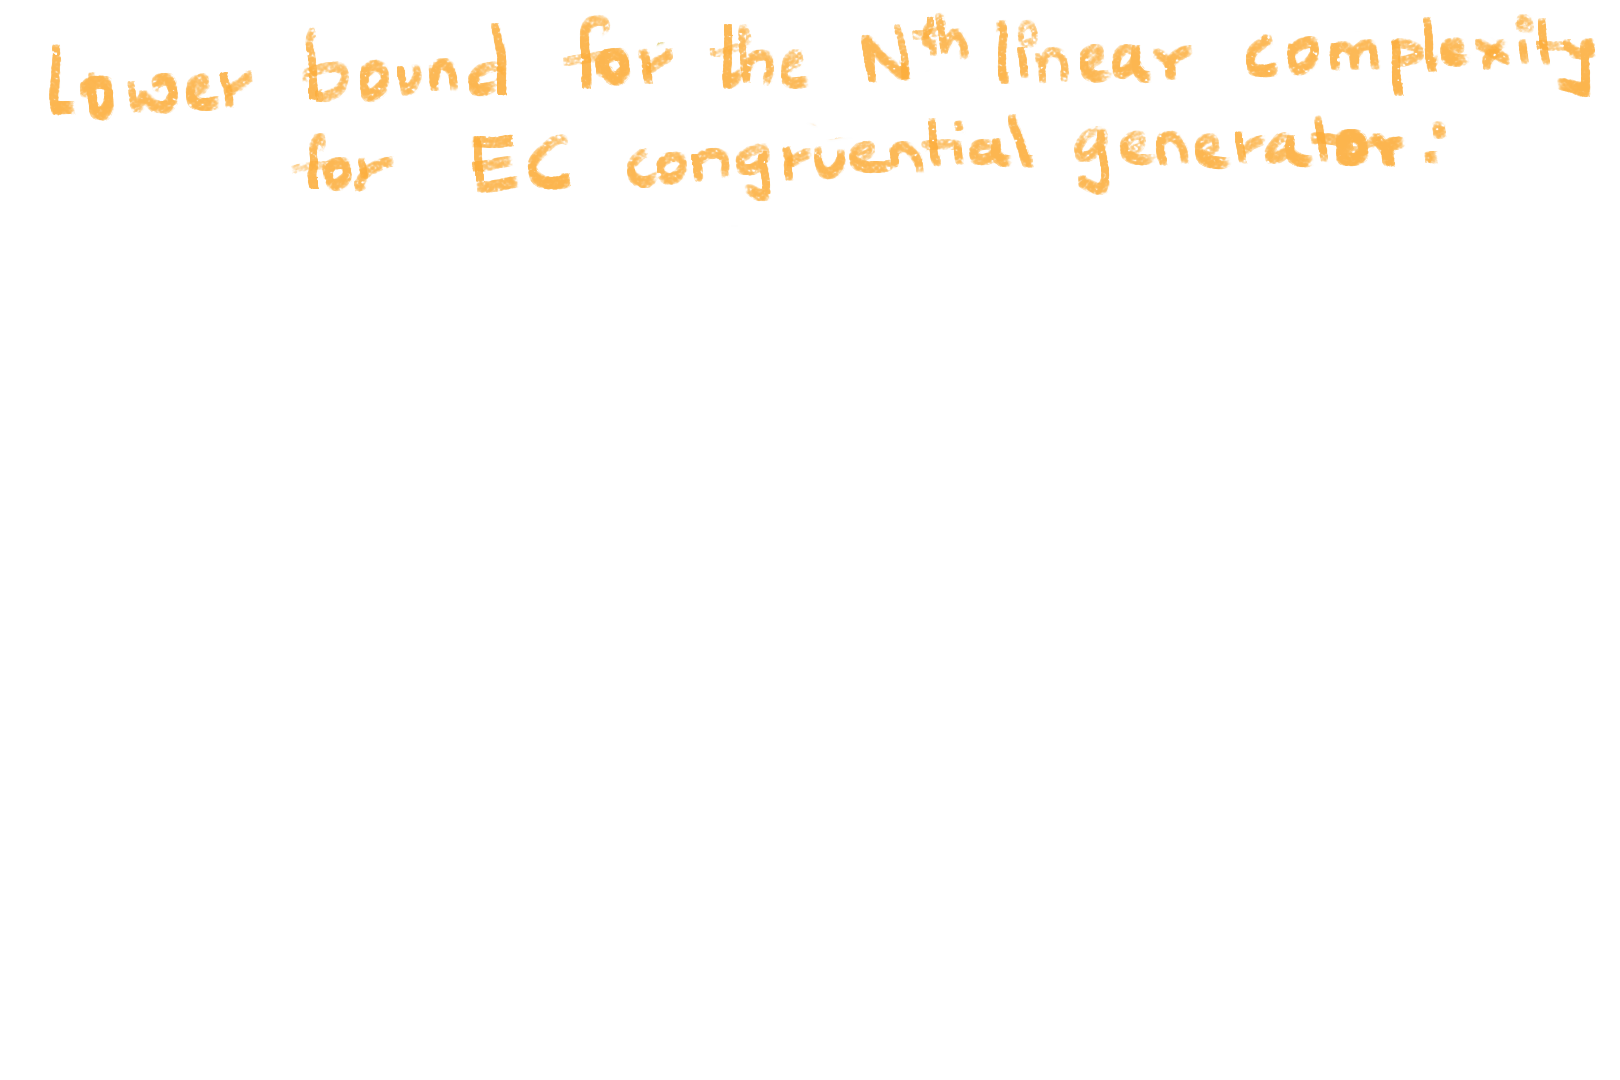 Lower bound for the Nth linear complexity
for EC congruential generator: